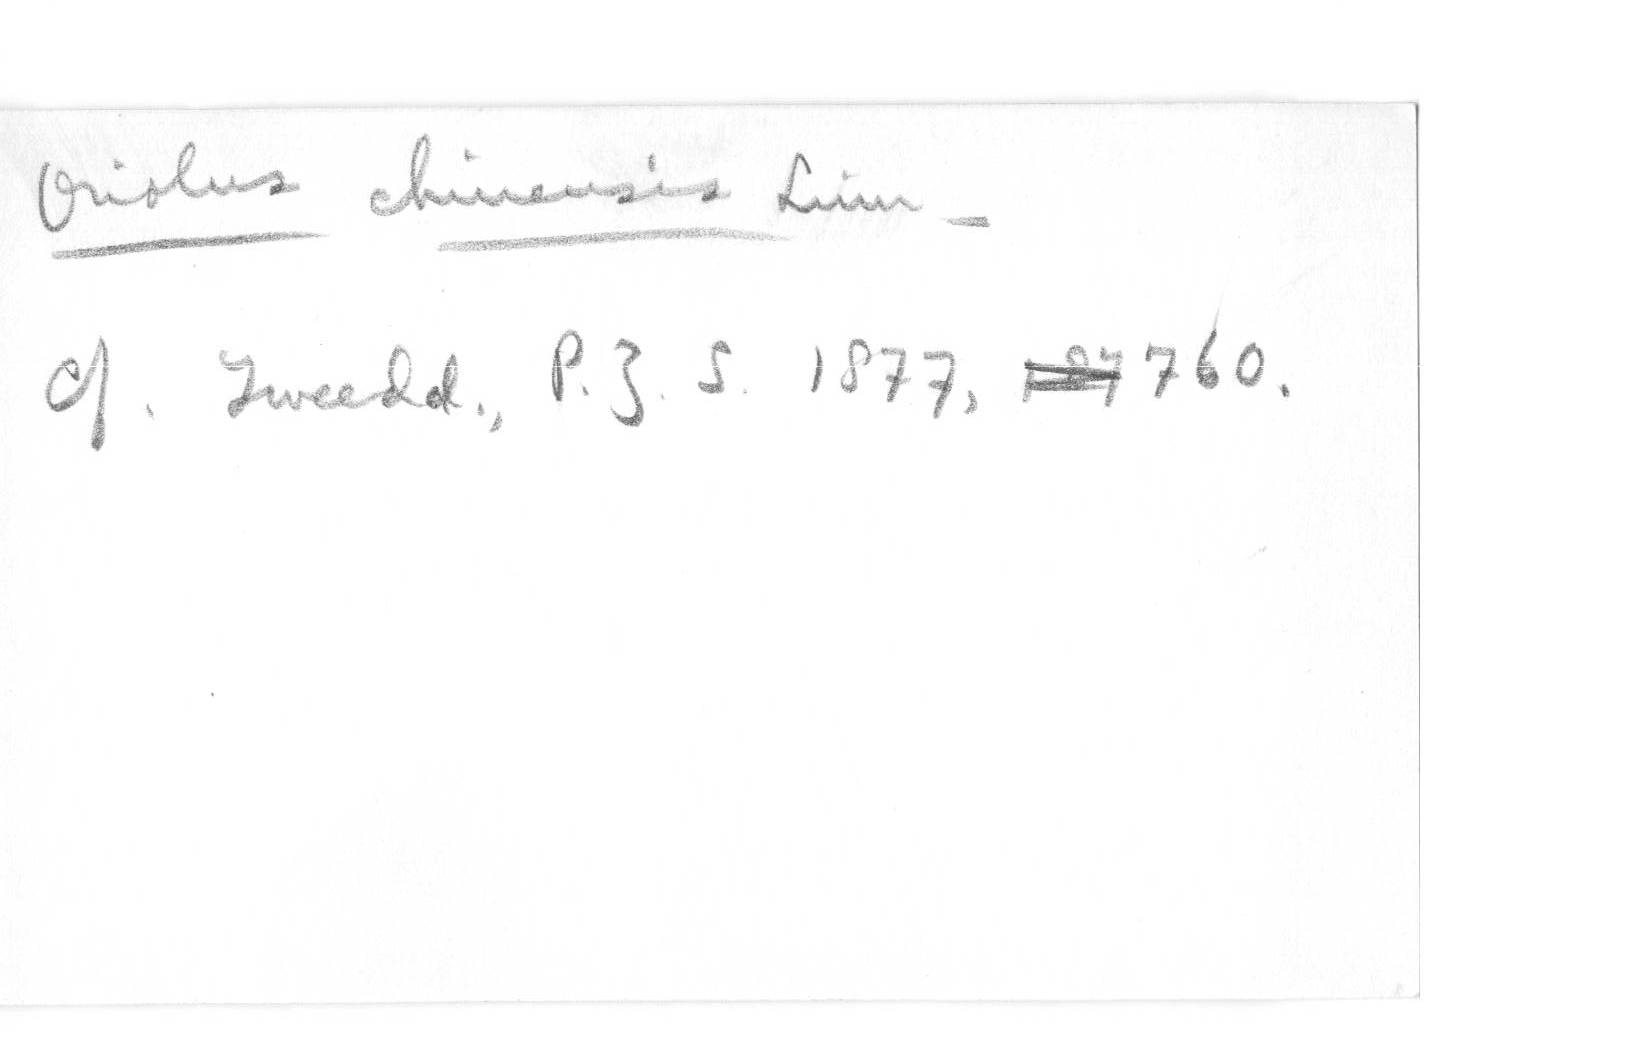 Oriolus chinensis Linn –
cf. Tweedd., P.Z.S. 1877, 760.